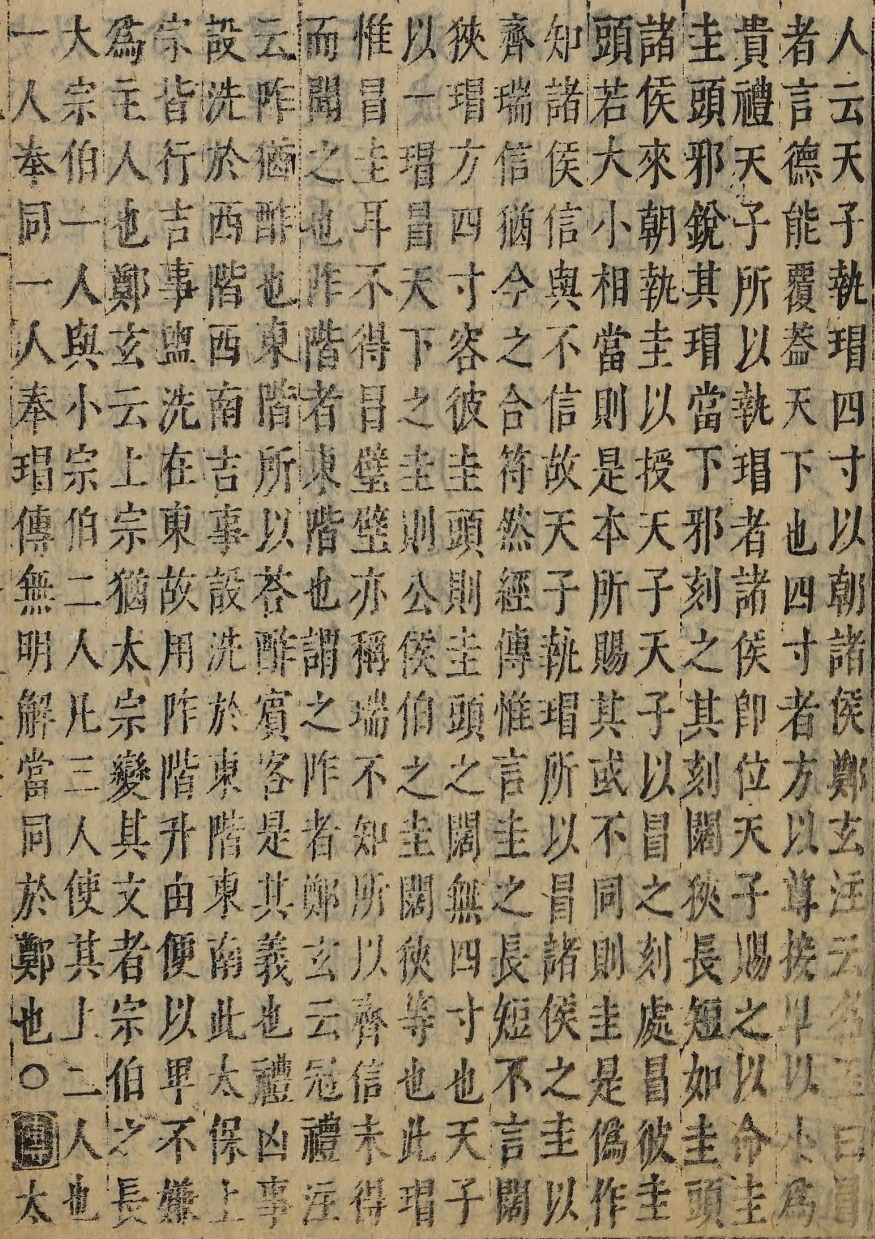 人云天子執瑁四寸以朝諸侯鄭玄注云名玉曰冒
者言德能覆蓋天下也四寸者方以尊接卑以小為
貴禮天子所以執瑁者諸侯即位天子賜之以命圭
圭頭邪銳其瑁當下邪刻之其刻闊狹長短如圭頭
諸侯來朝執圭以授天子天子以冒之刻處冒彼圭
頭若大小相當則是本所賜其或不同則圭是偽作
知諸侯信與不信故天子執瑁所以冒諸侯之圭以
齊瑞信猶今之合符然經傳惟言圭之長短不言闊
狹瑁方四寸容彼圭頭則圭頭之闊無四寸也天子
以一瑁冒天下之圭則公侯伯之圭闊狹等也此瑁
惟冒圭耳不得冒璧璧亦稱瑞不知所以齊信未得
而聞之也阼階者東階也謂之阼者鄭玄云冠禮注
云阼猶酢也東階所以荅酢賓客是其義也禮凶事
設洗於西階西南吉事設洗於東階東南此太保上
宗皆行吉事盥洗在東故用阼階升由便以卑不嫌
為主人也鄭玄云上宗猶太宗變其文者宗伯之長
大宗伯一人與小宗伯二人凡三人使其上二人也
一人奉同一人奉瑁傳無明解當同於鄭也○ 太